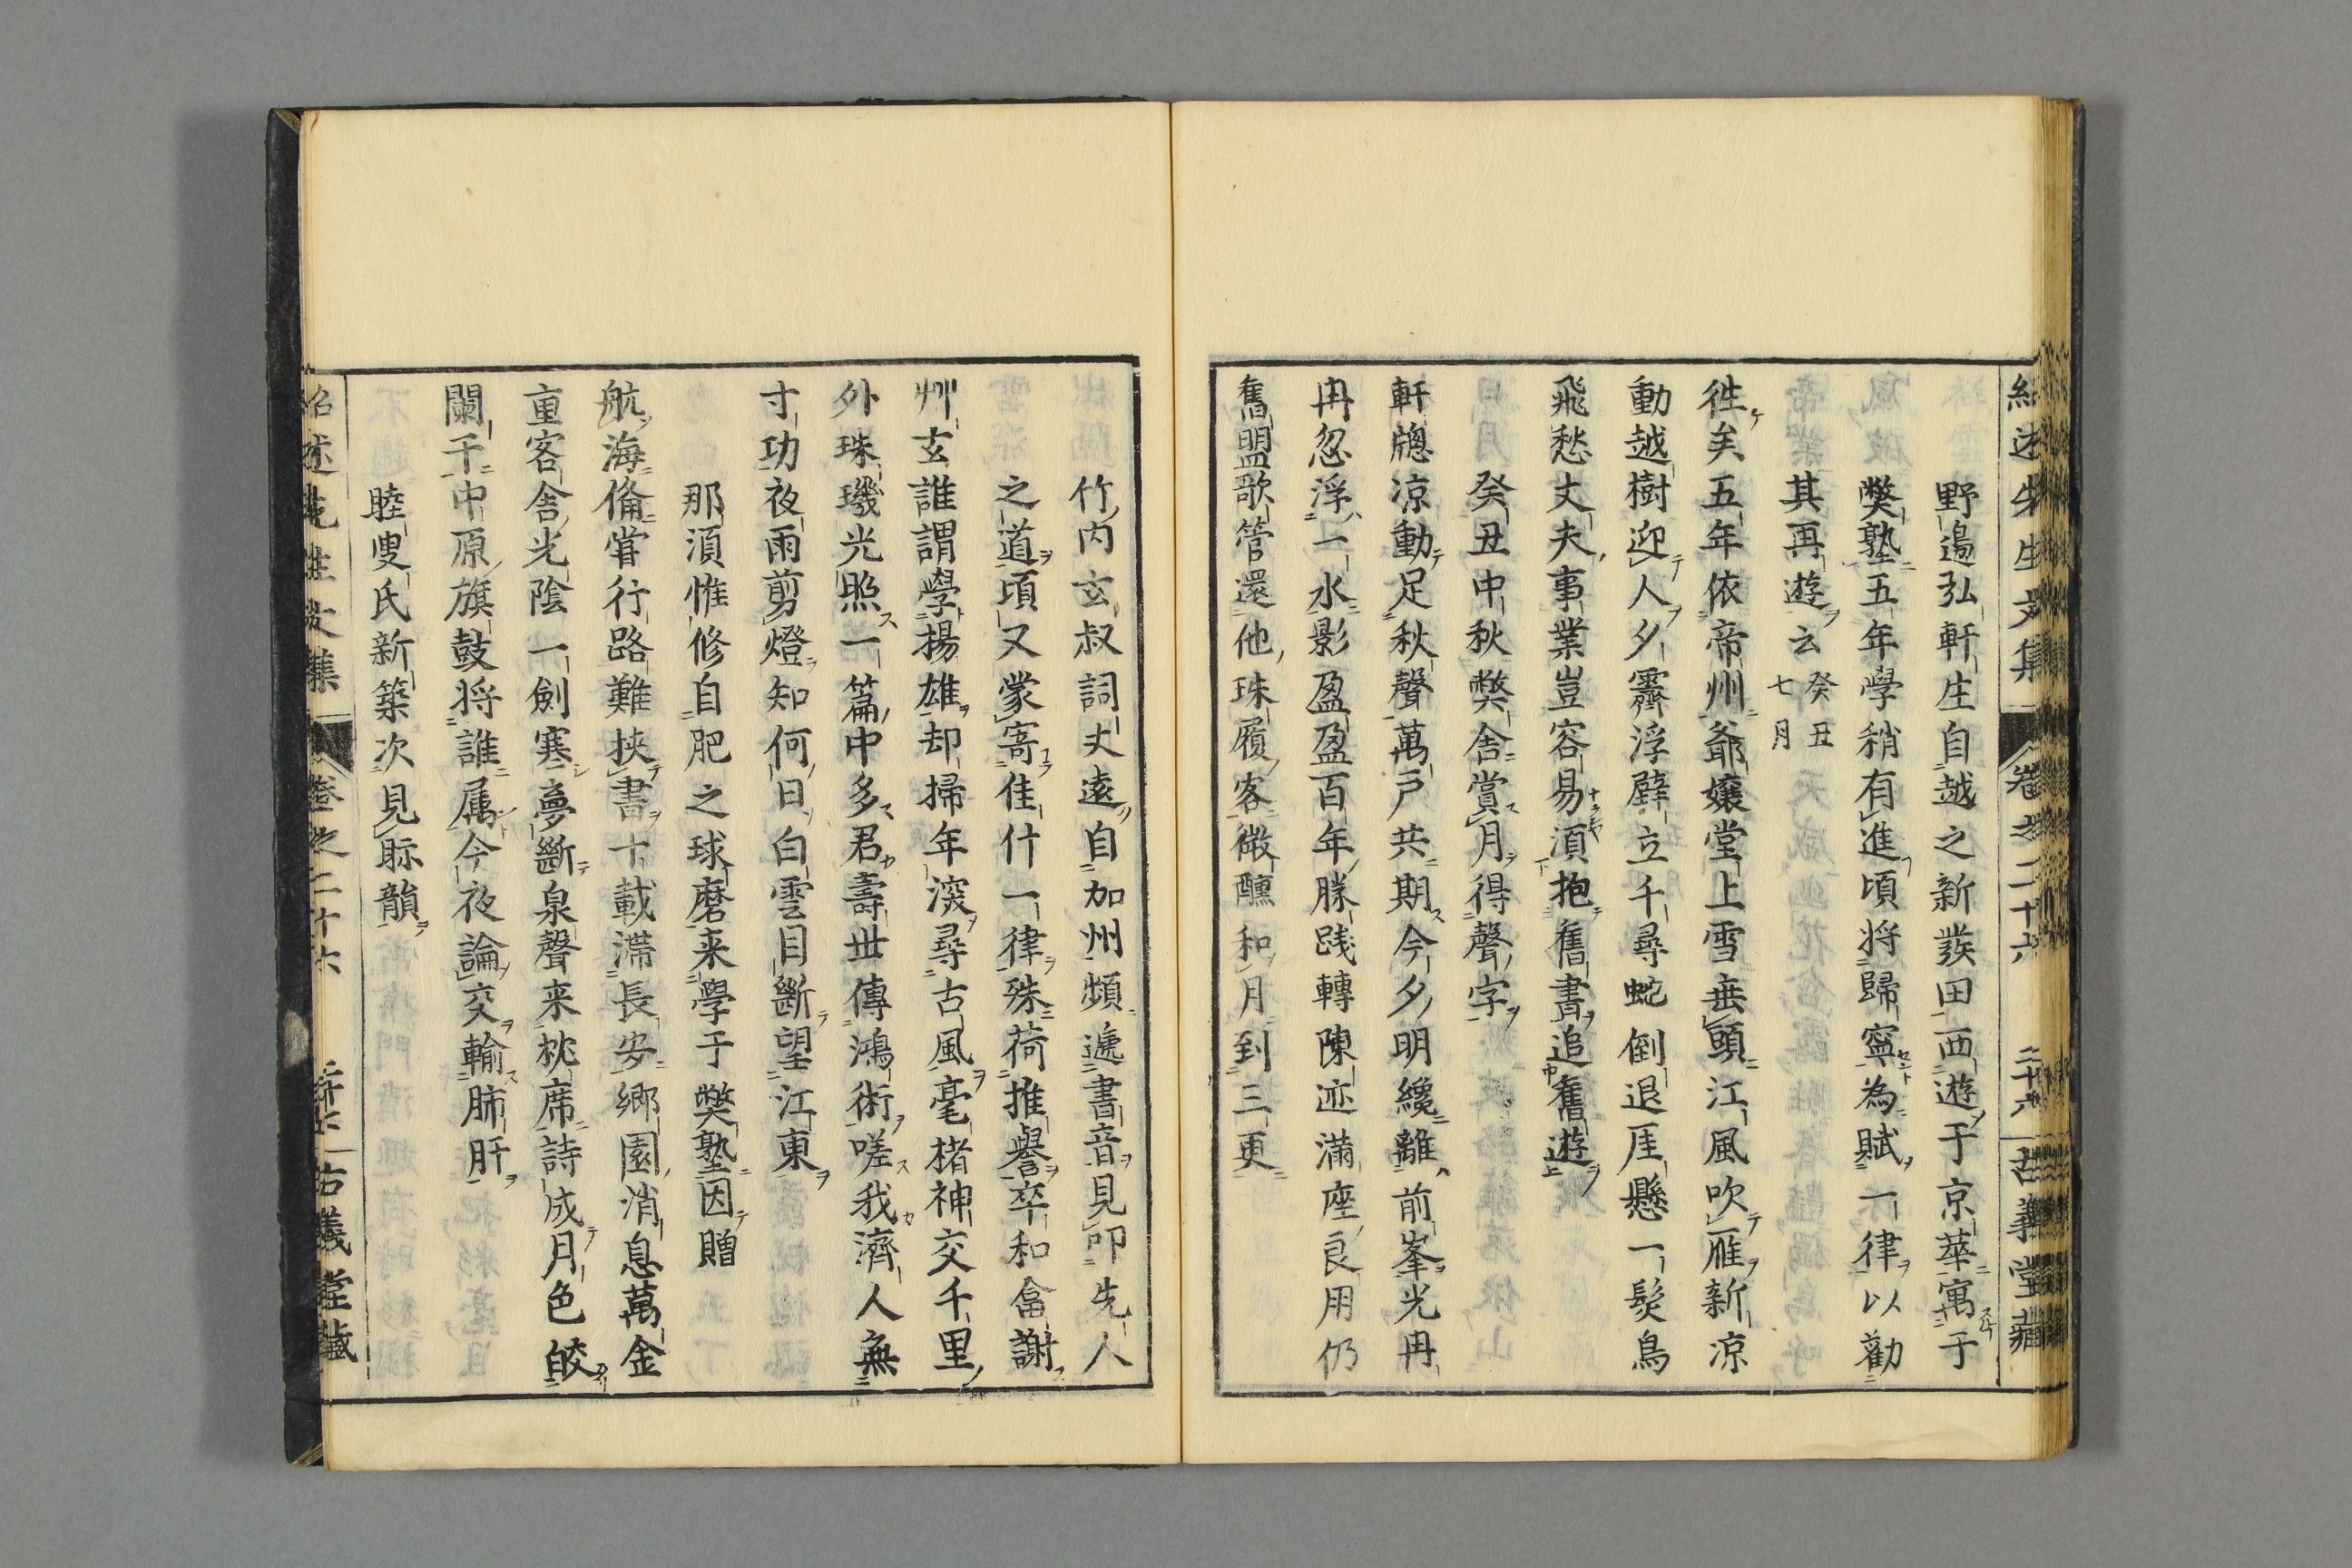 紹述先生文集 卷之二十六 二十六 古義堂藏
野邉弘軒生自越之新發田西遊于京華寓于
弊塾五年學稍有進頃将歸寧為賦一律以勸
其再遊云癸丑七月
徃矣五年依帝州爺孃堂上雪垂頭江風吹雁新凉
動越樹迎人夕靄浮壁立千尋蛇倒退厓懸一髮鳥
飛愁丈夫事業豈容易須抱舊書追舊遊
癸丑中秋弊舎賞月得聲字
軒窻凉動足秋聲萬戸共期今夕明纔離前峯光冉
冉忽浮一水影盈盈百年勝践轉陳迹滿座良朋仍
舊盟歌管還他珠履客微醺和月到三更
竹内玄叔詞丈遠自加州頻遞書音見叩先人
之道頃又蒙寄佳什一律殊荷推譽卒和畣謝
艸玄誰謂學揚雄却掃年深尋古風毫楮神交千里
外珠璣光照一篇中多君壽世傳鴻術嗟我濟人無
寸功夜雨剪燈知何日白雲目斷望江東
那須惟修自肥之球磨来學于弊塾因贈
航海俻甞行路難挾書十載滯長安郷園消息萬金
重客舎光陰一劍寒夢斷泉聲来枕席詩成月色皎
闌干中原旗鼓将誰属今夜論交輸肺肝
睦叟氏新築次見眎韻
紹述先生文集 卷之二十六 古義堂藏